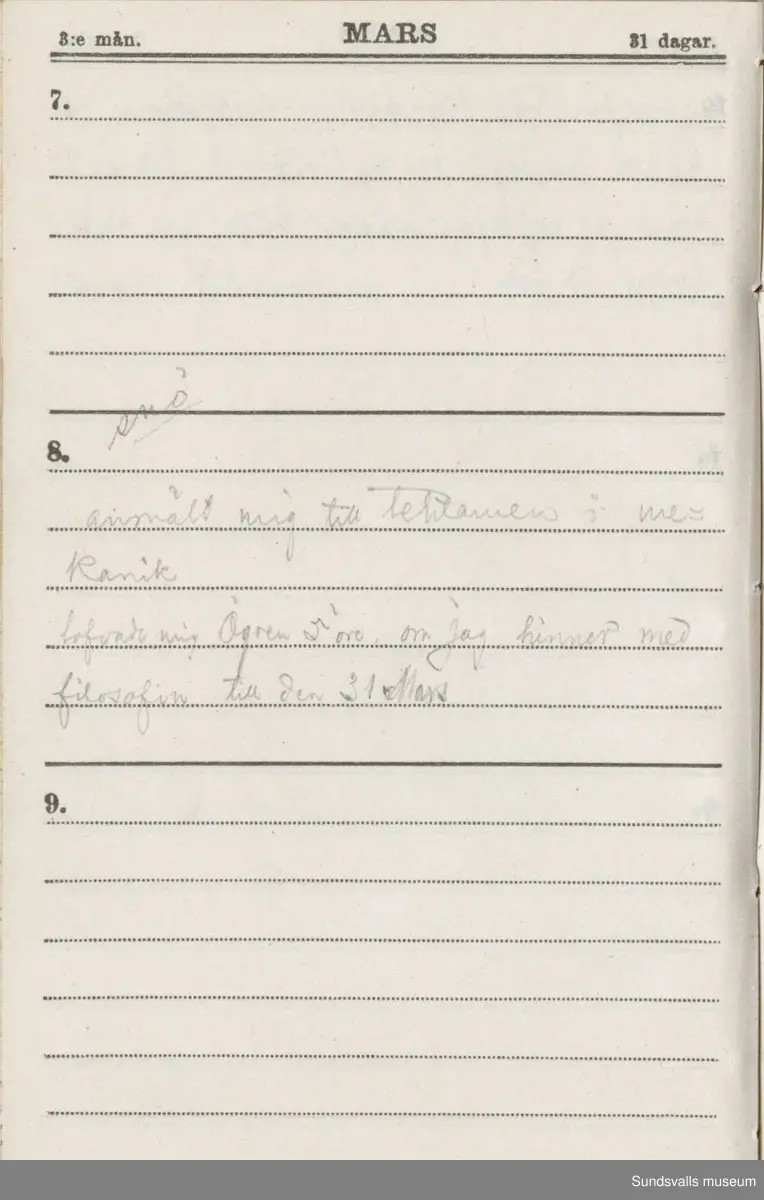 3:e mån. MARS 31 dagar.
7.
snö
8.
anmält mig till Tentamen i me-
kanik
lofvade mig Ögren 5 öre, om jag hinner med
filosofin till den 31 Mars
9.
Sundsvalls museum